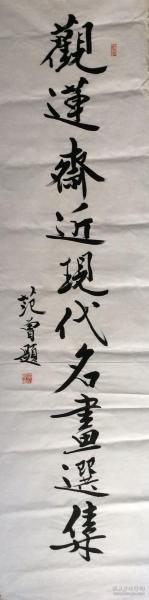 觀蓮齋近現代名畫選集
范曾題